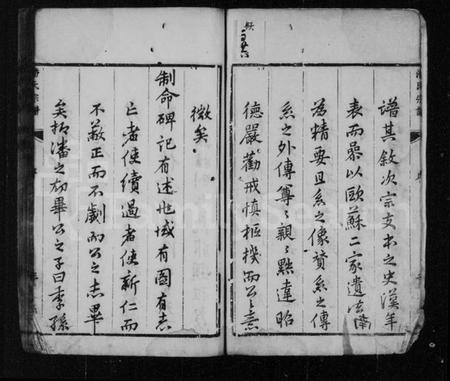 譜其敘次宗支本之史漢年
表而參以歐蘇二家遺法簡
為精要且系之像贊系之傳
系之外傳尊〻親〻黜違昭
德嚴勸戒慎樞機而公之意
微矣
制命碑記有述也域有圖有志
亡者使續過者使新仁而
不蔽正而不劇而公之志畢
矣抑潘之初畢公之子曰季孫